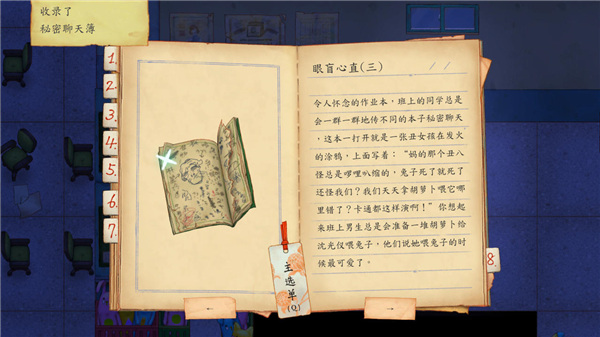 收录了
秘密聊天薄
1.
2.
3.
4.
5.
6.
7.
眼盲心直(三)
令人怀念的作业本，班上的同学总是
会一群一群地传不同的本子秘密聊天
，这本一打开就是一张丑女孩在发火
的涂鸦，上面写着：“妈的那个丑八
怪总是啰哩叭缩的，兔子死了就死了
还怪我们？我们天天拿胡萝卜喂它哪
里错了？卡通都这样演啊！”你想起
来班上男生总是会准备一堆胡萝卜给
沈光仪喂兔子，他们说她喂兔子的时
候最可爱了。
主选单
(Q)
8.
←
→